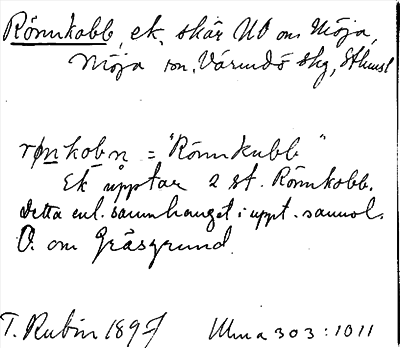 Rönnkobb, ek. skär NO om Möja,
Möja sn. Värmdö skg, Sthmsl
rønkobn = "Rönnkubb"
Ek upptar 2 st. Rönnkobb.
Detta enl. sammhanget i uppt. sannol.
O. om Gräsgrund.
T. Rubin 1897 Ulma 303:1011